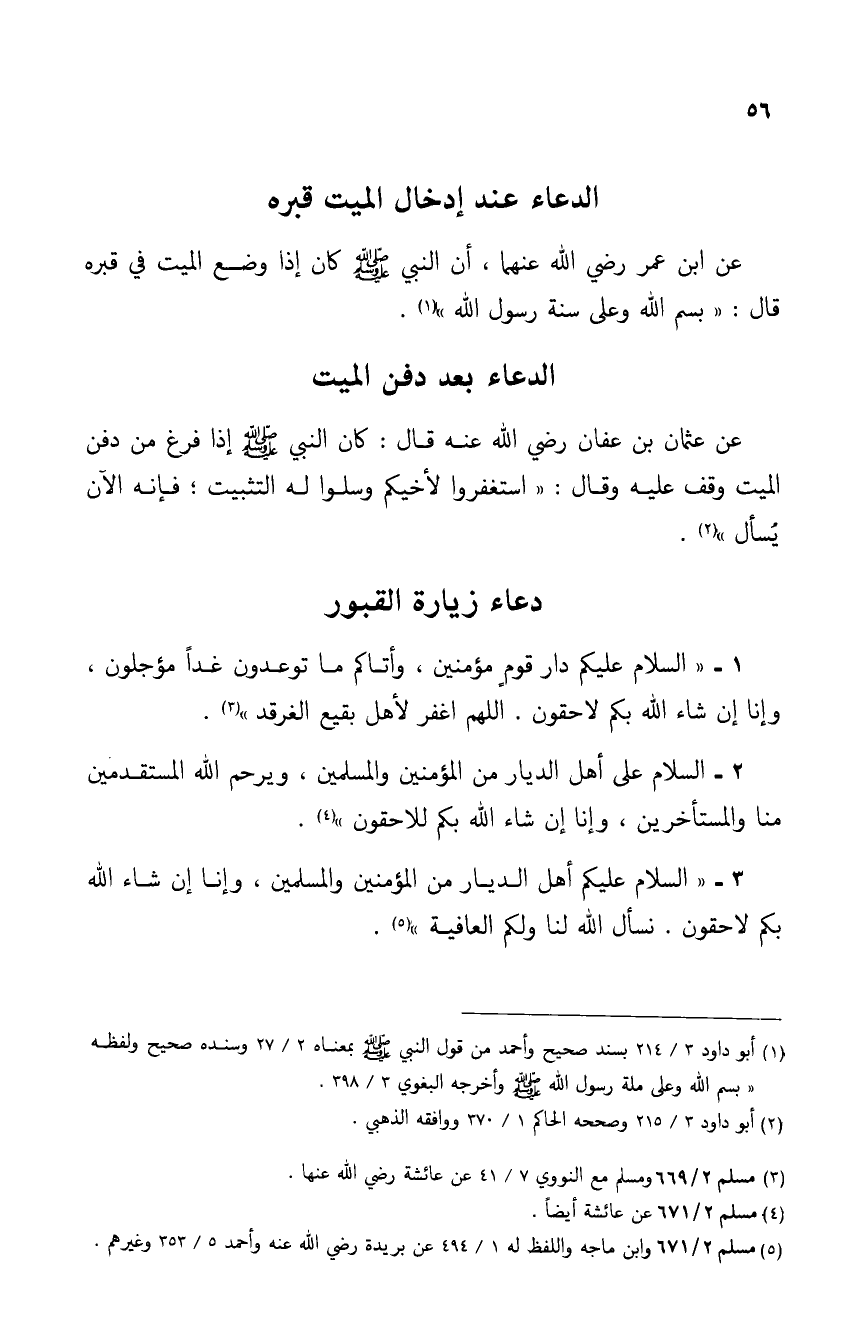 ٥٦
الدعاء عند إدخال الميت قبره
عن ابن عمر رضي الله عنهما ، أن النبي ﷺ كان إذا وضع الميت في قبره
قال : « بسم الله وعلى سنة رسول الله »(١) .
الدعاء بعد دفن الميت
عن عثمان بن عفان رضي الله عنه قال : كان النبي ﷺ إذا فرغ من دفن
الميت وقف عليه وقال : « استغفروا لأخيكم وسلوا له التثبيت ؛ فإنه الآن
يُسأل »(٢) .
دعاء زيارة القبور
١ ـ « السلام عليكم دار قومٍ مؤمنين ، وأتاكم ما توعدون غداً مؤجلون ،
وإنا إن شاء الله بكم لاحقون . اللهم اغفر لأهل بقيع الغرقد »(٣) .
٢ ـ السلام على أهل الديار من المؤمنين والمسلمين ، ويرحم الله المستقدمين
منا والمستأخرين ، وإنا إن شاء الله بكم للاحقون »(٤) .
٣ ـ « السلام عليكم أهل الديار من المؤمنين والمسلمين ، وإنا إن شاء الله
بكم لاحقون . نسأل الله لنا ولكم العافية »(٥) .
(١) أبو داود ٣ / ٢١٤ بسند صحيح وأحمد من قول النبي ﷺ بمعناه ٢ / ٢٧ وسنده صحيح ولفظه
« بسم الله وعلى ملة رسول الله ﷺ وأخرجه البغوي ٣ / ٣٩٨ .
(٢) أبو داود ٣ / ٢١٥ وصححه الحاكم ١ / ٣٧٠ ووافقه الذهبي .
(٣) مسلم ٦٦٩/٢ ومسلم مع النووي ٧ / ٤١ عن عائشة رضي الله عنها .
(٤) مسلم ٦٧١/٢ عن عائشة أيضاً .
(٥) مسلم ٦٧١/٢ وابن ماجه واللفظ له ١ / ٤٩٤ عن بريدة رضي الله عنه وأحمد ٥ / ٣٥٣ وغيرهم .